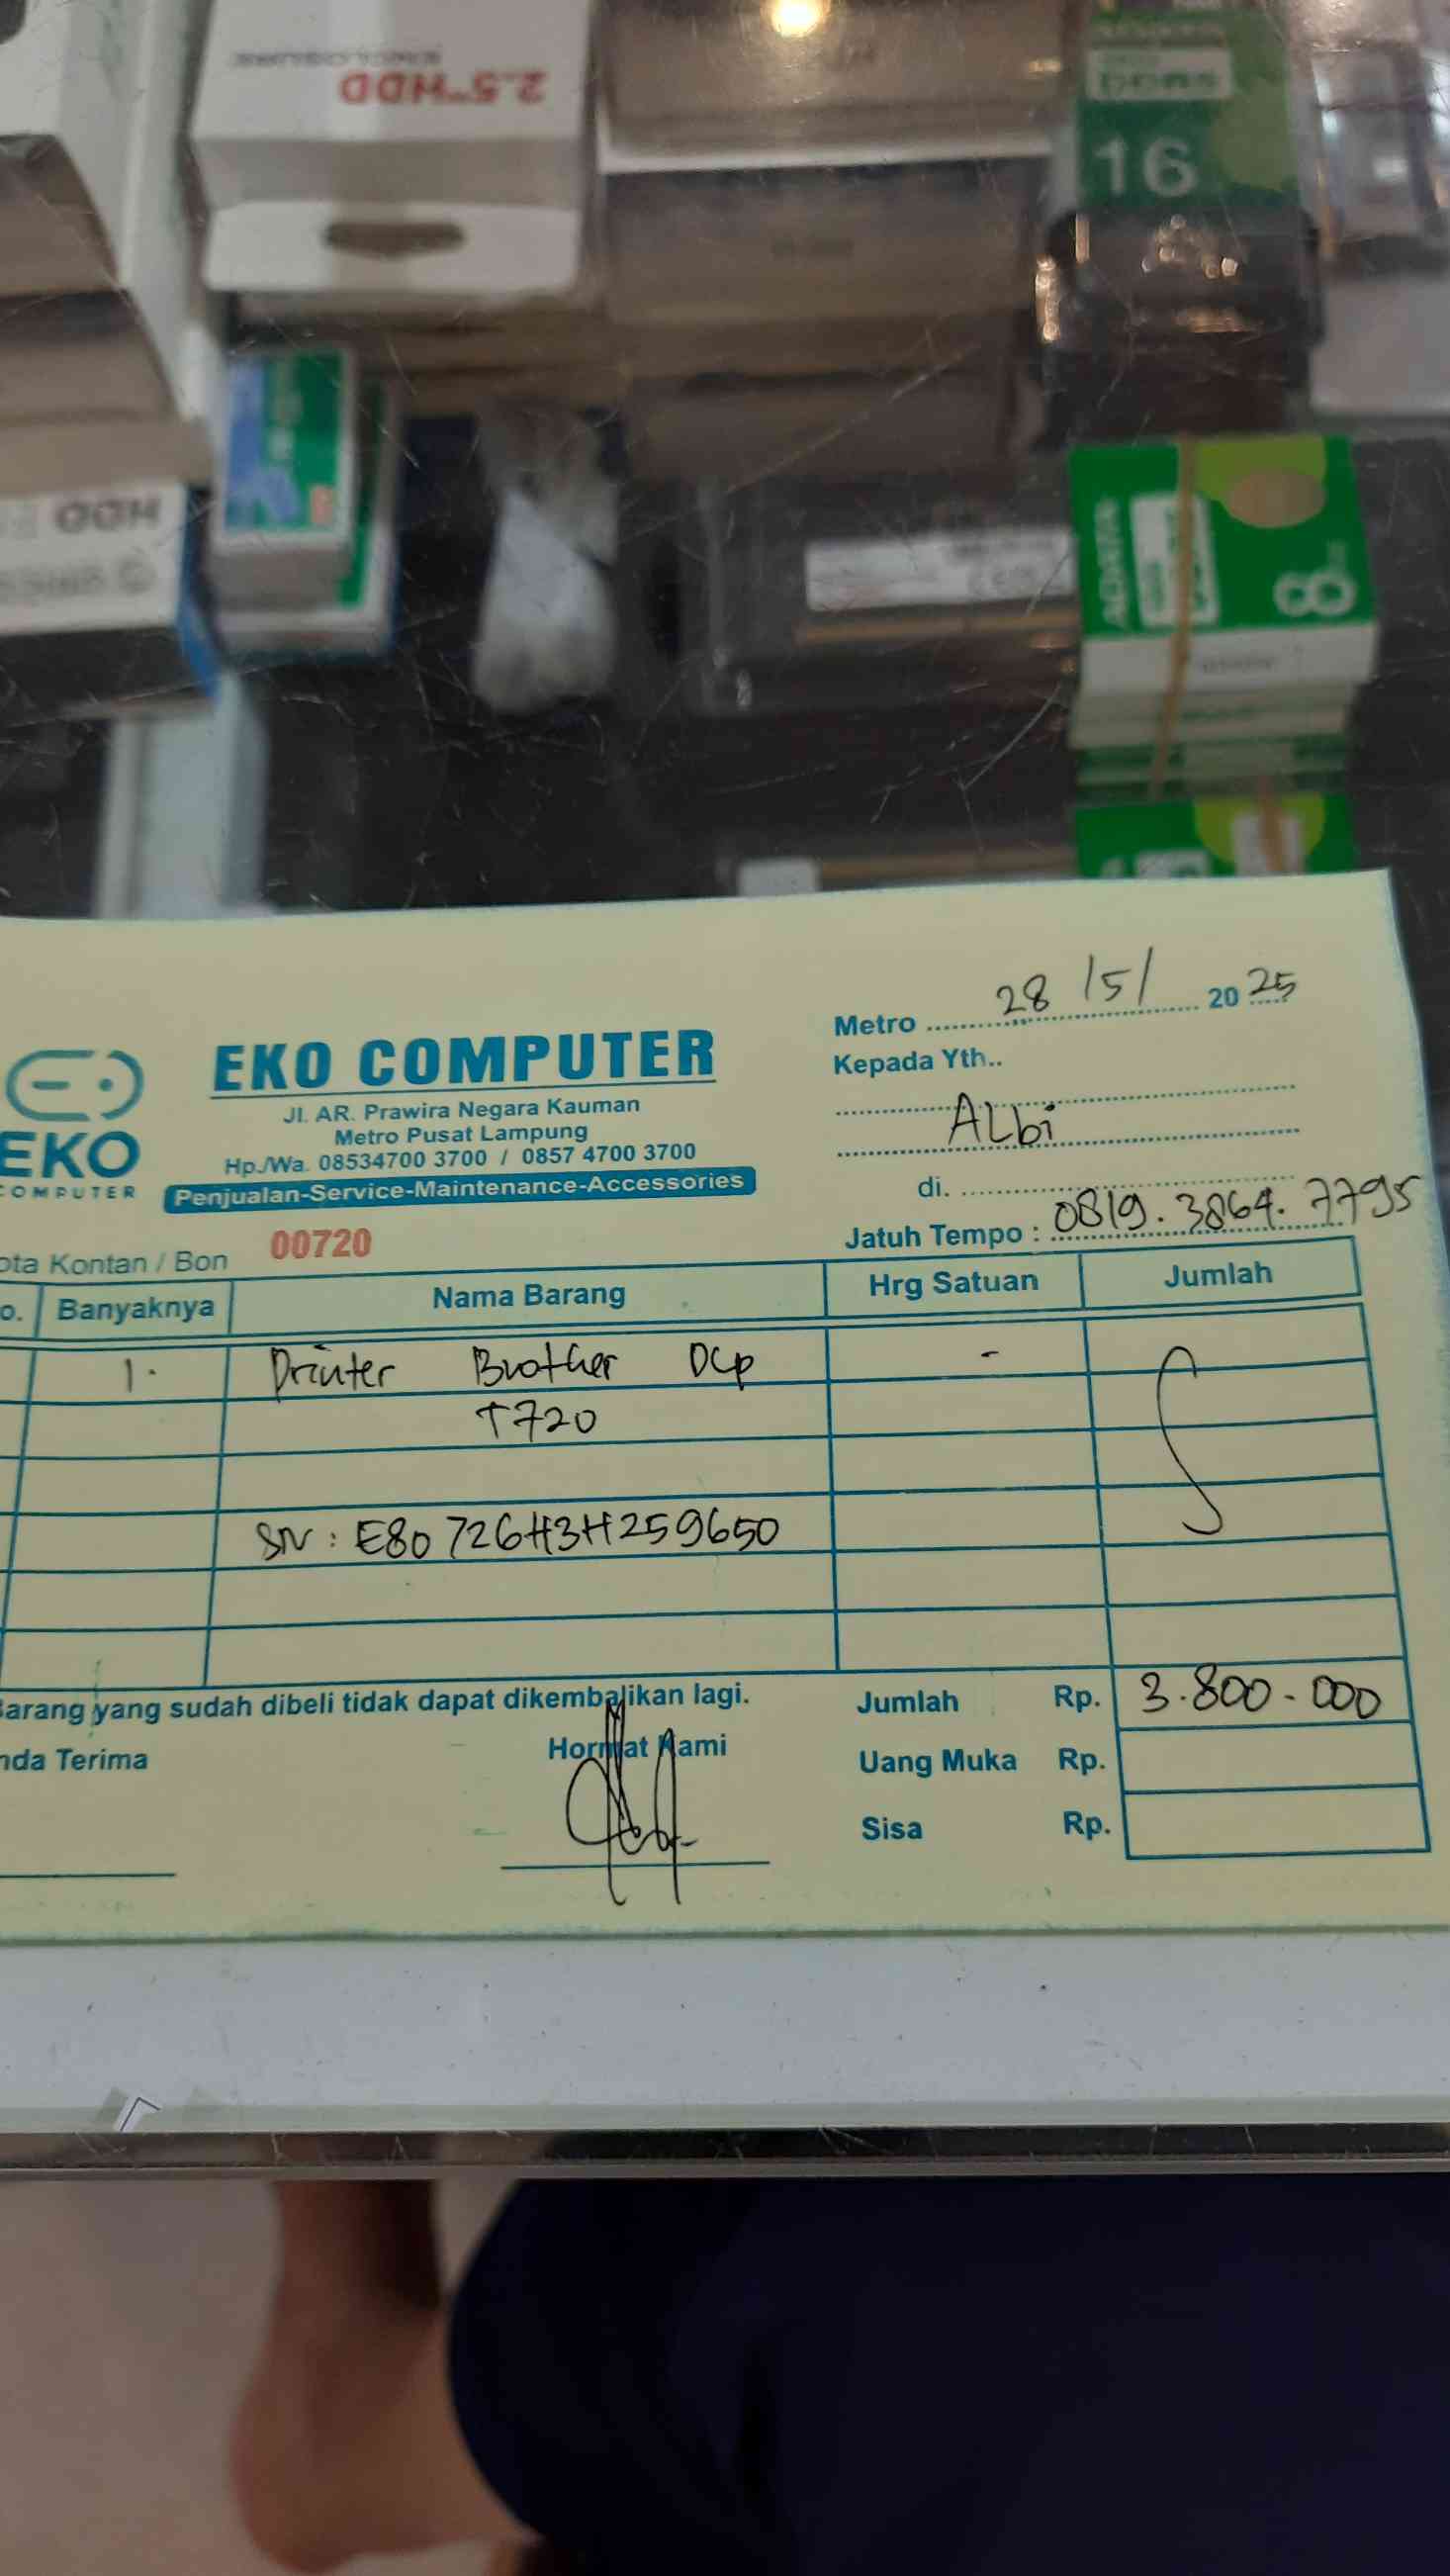 2.5" HDD
ENCLOSURE
16
HDD
ADATA
8
Metro 28 /5/ 2025
Kepada Yth..
ALbi
di.
Jatuh Tempo : 0819.3864.7795
EKO
COMPUTER
EKO COMPUTER
Jl. AR. Prawira Negara Kauman
Metro Pusat Lampung
Hp./Wa. 08534700 3700 / 0857 4700 3700
Penjualan-Service-Maintenance-Accessories
ota Kontan / Bon 00720
o. Banyaknya Nama Barang Hrg Satuan Jumlah
1. Printer Brother DCp -
T720
SN : E80726H3H259650
Barang yang sudah dibeli tidak dapat dikembalikan lagi.
nda Terima
Hormat Kami
Jumlah Rp. 3.800-000
Uang Muka Rp.
Sisa Rp.